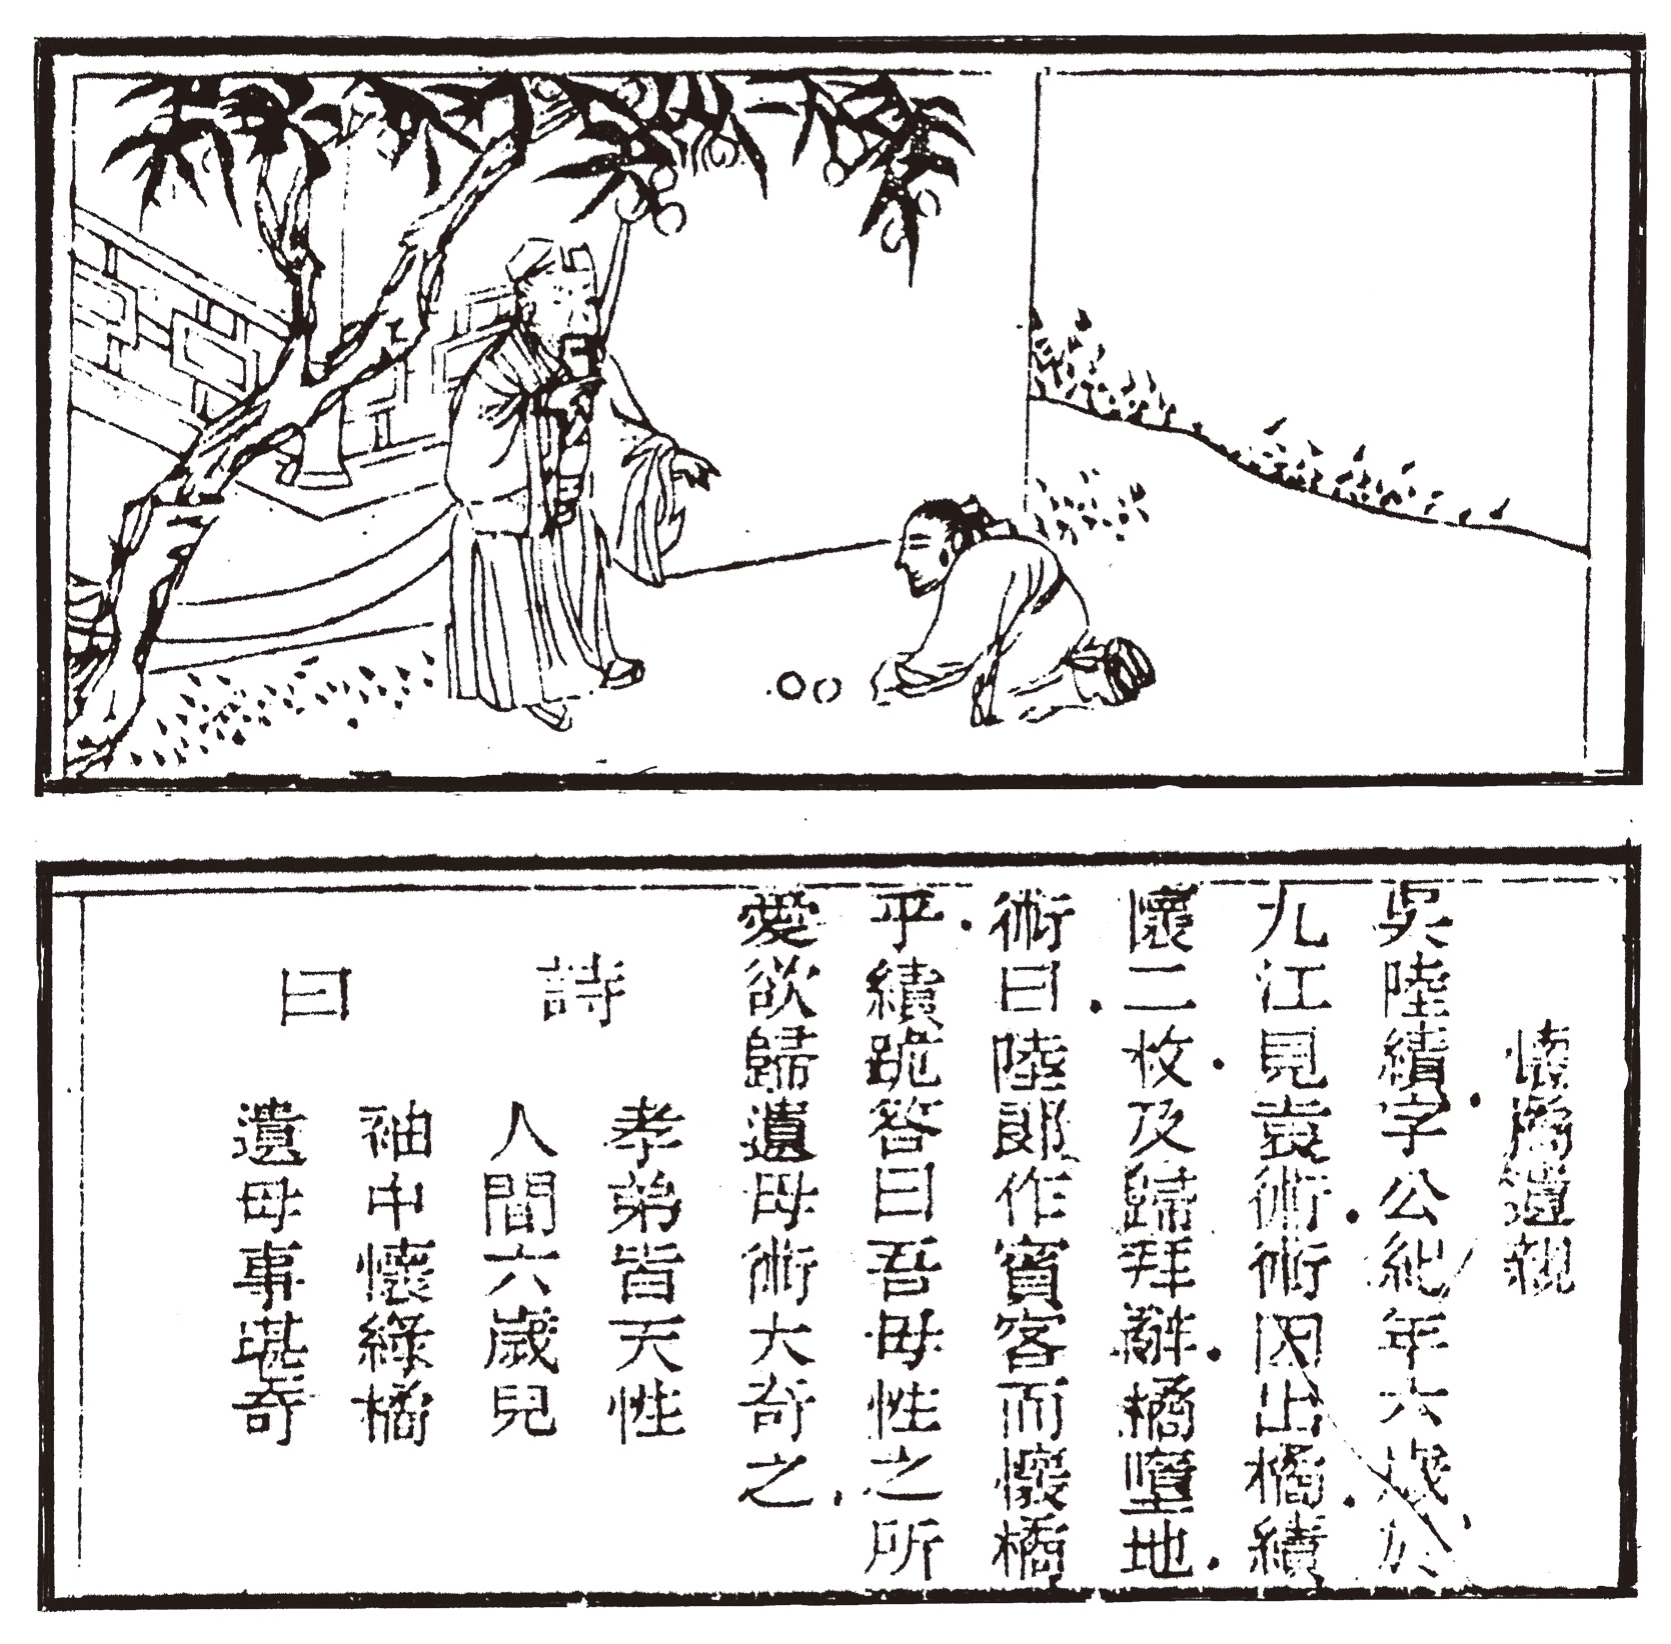 懷橘遺親
吳陸績字公紀年六歲於
九江見袁術術因出橘績
懷二枚及歸拜辭橘墮地
術曰陸郎作賓客而懷橘
乎績跪答曰吾母性之所
愛欲歸遺母術大奇之
詩
曰
孝弟皆天性
人間六歲兒
袖中懷綠橘
遺母事堪奇